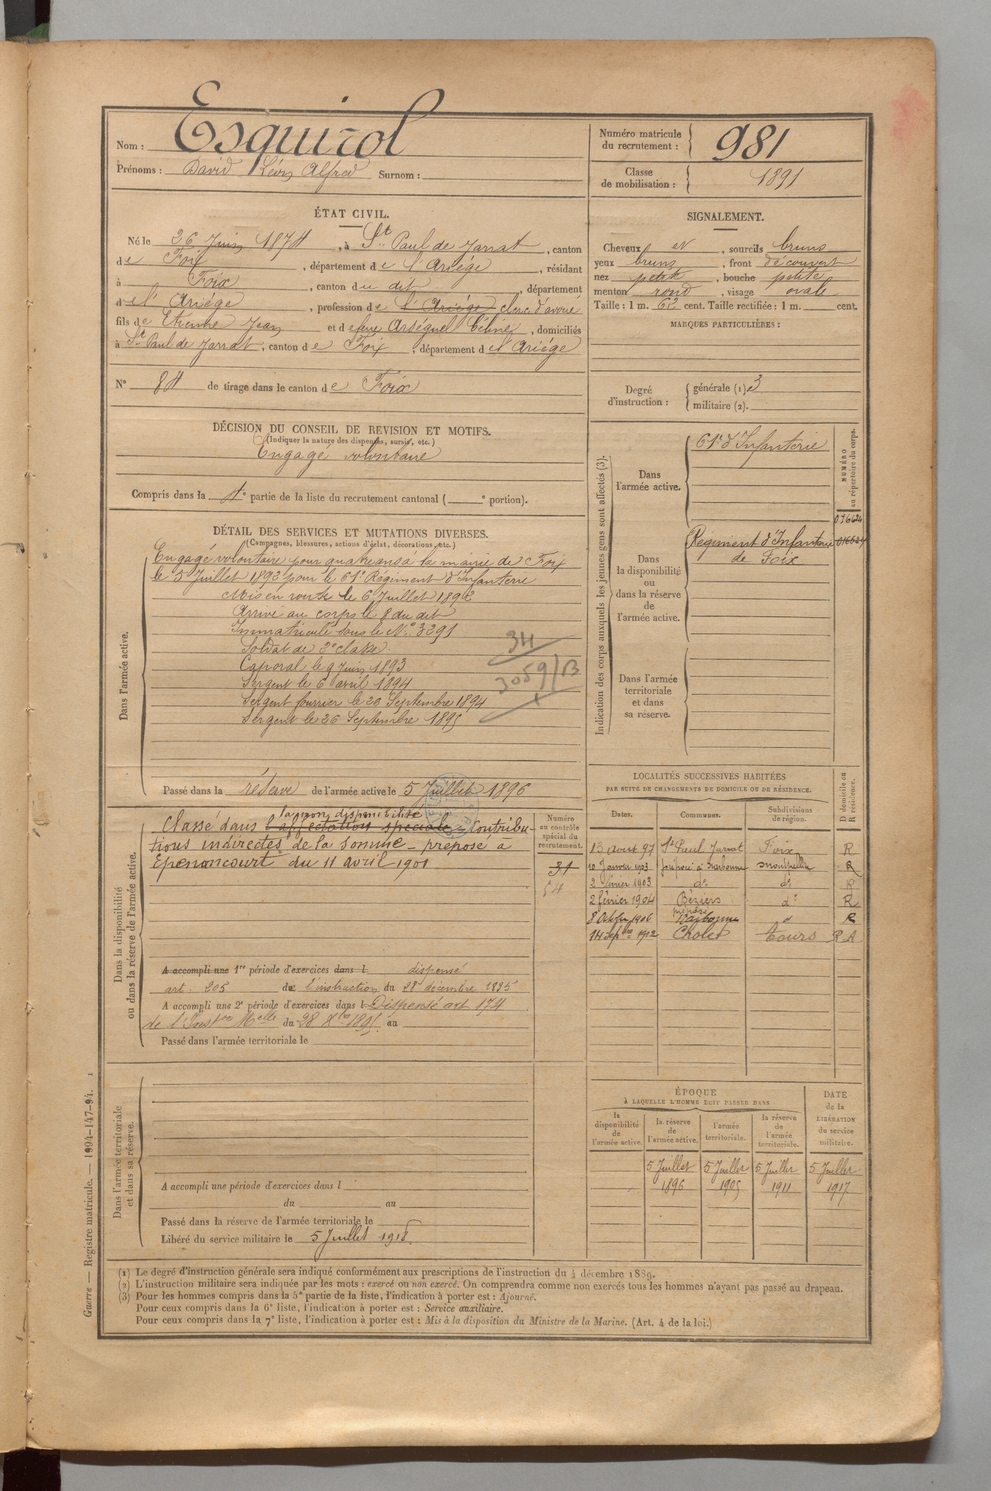 Nom : Esquirol
Prénoms : David Léon Alfred Surnom :
Numéro matricule du recrutement : 981
Classe de mobilisation : 1891
ÉTAT CIVIL.
Né le 26 Juin 1874, à St Paul de Jarrat, canton
de Foix, département de l'Ariège, résidant
à Foix, canton du dit, département
de l'Ariège, profession de l'Ariège clerc d'avoué
fils de Etienne Jean et de feue Arséguel Céline, domiciliés
à St Paul de Jarrat, canton de Foix, département de l'Ariège
N° 84 de tirage dans le canton de Foix
SIGNALEMENT.
Cheveux et, sourcils bruns
yeux bruns, front découvert
nez petit, bouche petite
menton rond, visage ovale
Taille : 1 m. 62 cent. Taille rectifiée : 1 m. cent.
MARQUES PARTICULIÈRES :
Degré d'instruction : générale (1) 3
militaire (2).
DÉCISION DU CONSEIL DE REVISION ET MOTIFS.
(Indiquer la nature des dispenses, sursis, etc.)
Engagé volontaire
Compris dans la 4e partie de la liste du recrutement cantonal ( e portion).
DÉTAIL DES SERVICES ET MUTATIONS DIVERSES.
(Campagnes, blessures, actions d'éclat, décorations, etc.)
Dans l'armée active.
Engagé volontaire pour quatre ans à la mairie de Foix
le 5 Juillet 1892 pour le 61e Régiment d'Infanterie
Mis en route le 6 Juillet 1892
Arrivé au corps le 8 du dit
Immatriculé sous le N° 3291
Soldat de 2e classe
Caporal le 9 Juin 1893
Sergent le 6 avril 1894
Sergent fourrier le 20 Septembre 1894
Sergent le 26 Septembre 1895
34
3059/B
Passé dans la réserve de l'armée active le 5 Juillet 1896
Indication des corps auxquels les jeunes gens sont affectés (3).
NUMÉRO au répertoire du corps.
Dans l'armée active.
61e d'Infanterie
Dans la disponibilité ou dans la réserve de l'armée active.
Régiment d'Infanterie
de Foix
Dans l'armée territoriale et dans sa réserve.
Dans la disponibilité ou dans la réserve de l'armée active.
la non disponibilité
Classé dans l'affectation spéciale - Contribu-
tions indirectes de la Somme - préposé à
Epenancourt du 11 avril 1901
Numéro au contrôle spécial du recrutement.
31
54
A accompli une 1re période d'exercices dans l dispensé
art. 205 de l'instruction du 28 décembre 1895
A accompli une 2e période d'exercices dans l Dispensé art 174
de l'Inston Melle du 28 Xbre 1895 au
Passé dans l'armée territoriale le
LOCALITÉS SUCCESSIVES HABITÉES
PAR SUITE DE CHANGEMENTS DE DOMICILE OU DE RÉSIDENCE.
Dates. Communes. Subdivisions de région. D domicile ou R résidence.
13 Août 97 St Paul Jarrat Foix R
Janvier 1903 préposé à Narbonne Montpellier R
2 février 1903 do do R
2 février 1904 Béziers do R
8 Octobre 1906 Narbonne d R
14 septbre 1912 Cholet Tours R A
Dans l'armée territoriale et dans sa réserve.
A accompli une période d'exercices dans l
du au
Passé dans la réserve de l'armée territoriale le
Libéré du service militaire le 5 Juillet 1918
ÉPOQUE
À LAQUELLE L'HOMME DOIT PASSER DANS
DATE de la LIBÉRATION du service militaire.
la disponibilité de l'armée active. la réserve de l'armée active. l'armée territoriale. la réserve de l'armée territoriale.
5 Juillet 5 Juillet 5 Juillet 5 Juillet
1896 1905 1911 1917
(1) Le degré d'instruction générale sera indiqué conformément aux prescriptions de l'instruction du 4 décembre 1889.
(2) L'instruction militaire sera indiquée par les mots : exercé ou non exercé. On comprendra comme non exercés tous les hommes n'ayant pas passé au drapeau.
(3) Pour les hommes compris dans la 5e partie de la liste, l'indication à porter est : Ajourné.
Pour ceux compris dans la 6e liste, l'indication à porter est : Service auxiliaire.
Pour ceux compris dans la 7e liste, l'indication à porter est : Mis à la disposition du Ministre de la Marine. (Art. 4 de la loi.)
Guerre — Registre matricule. — 1994-147-94.